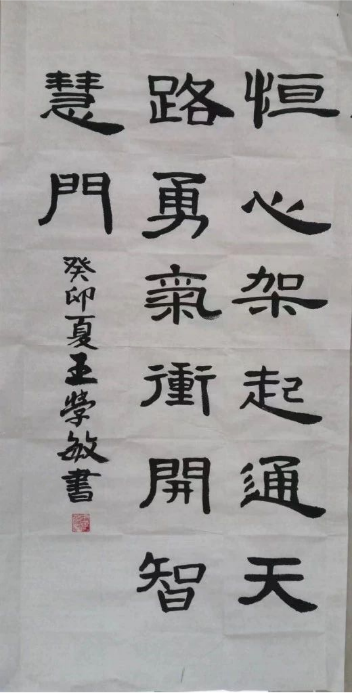 恒心架起通天
路勇氣衝開智
慧門
癸卯夏王學敏書